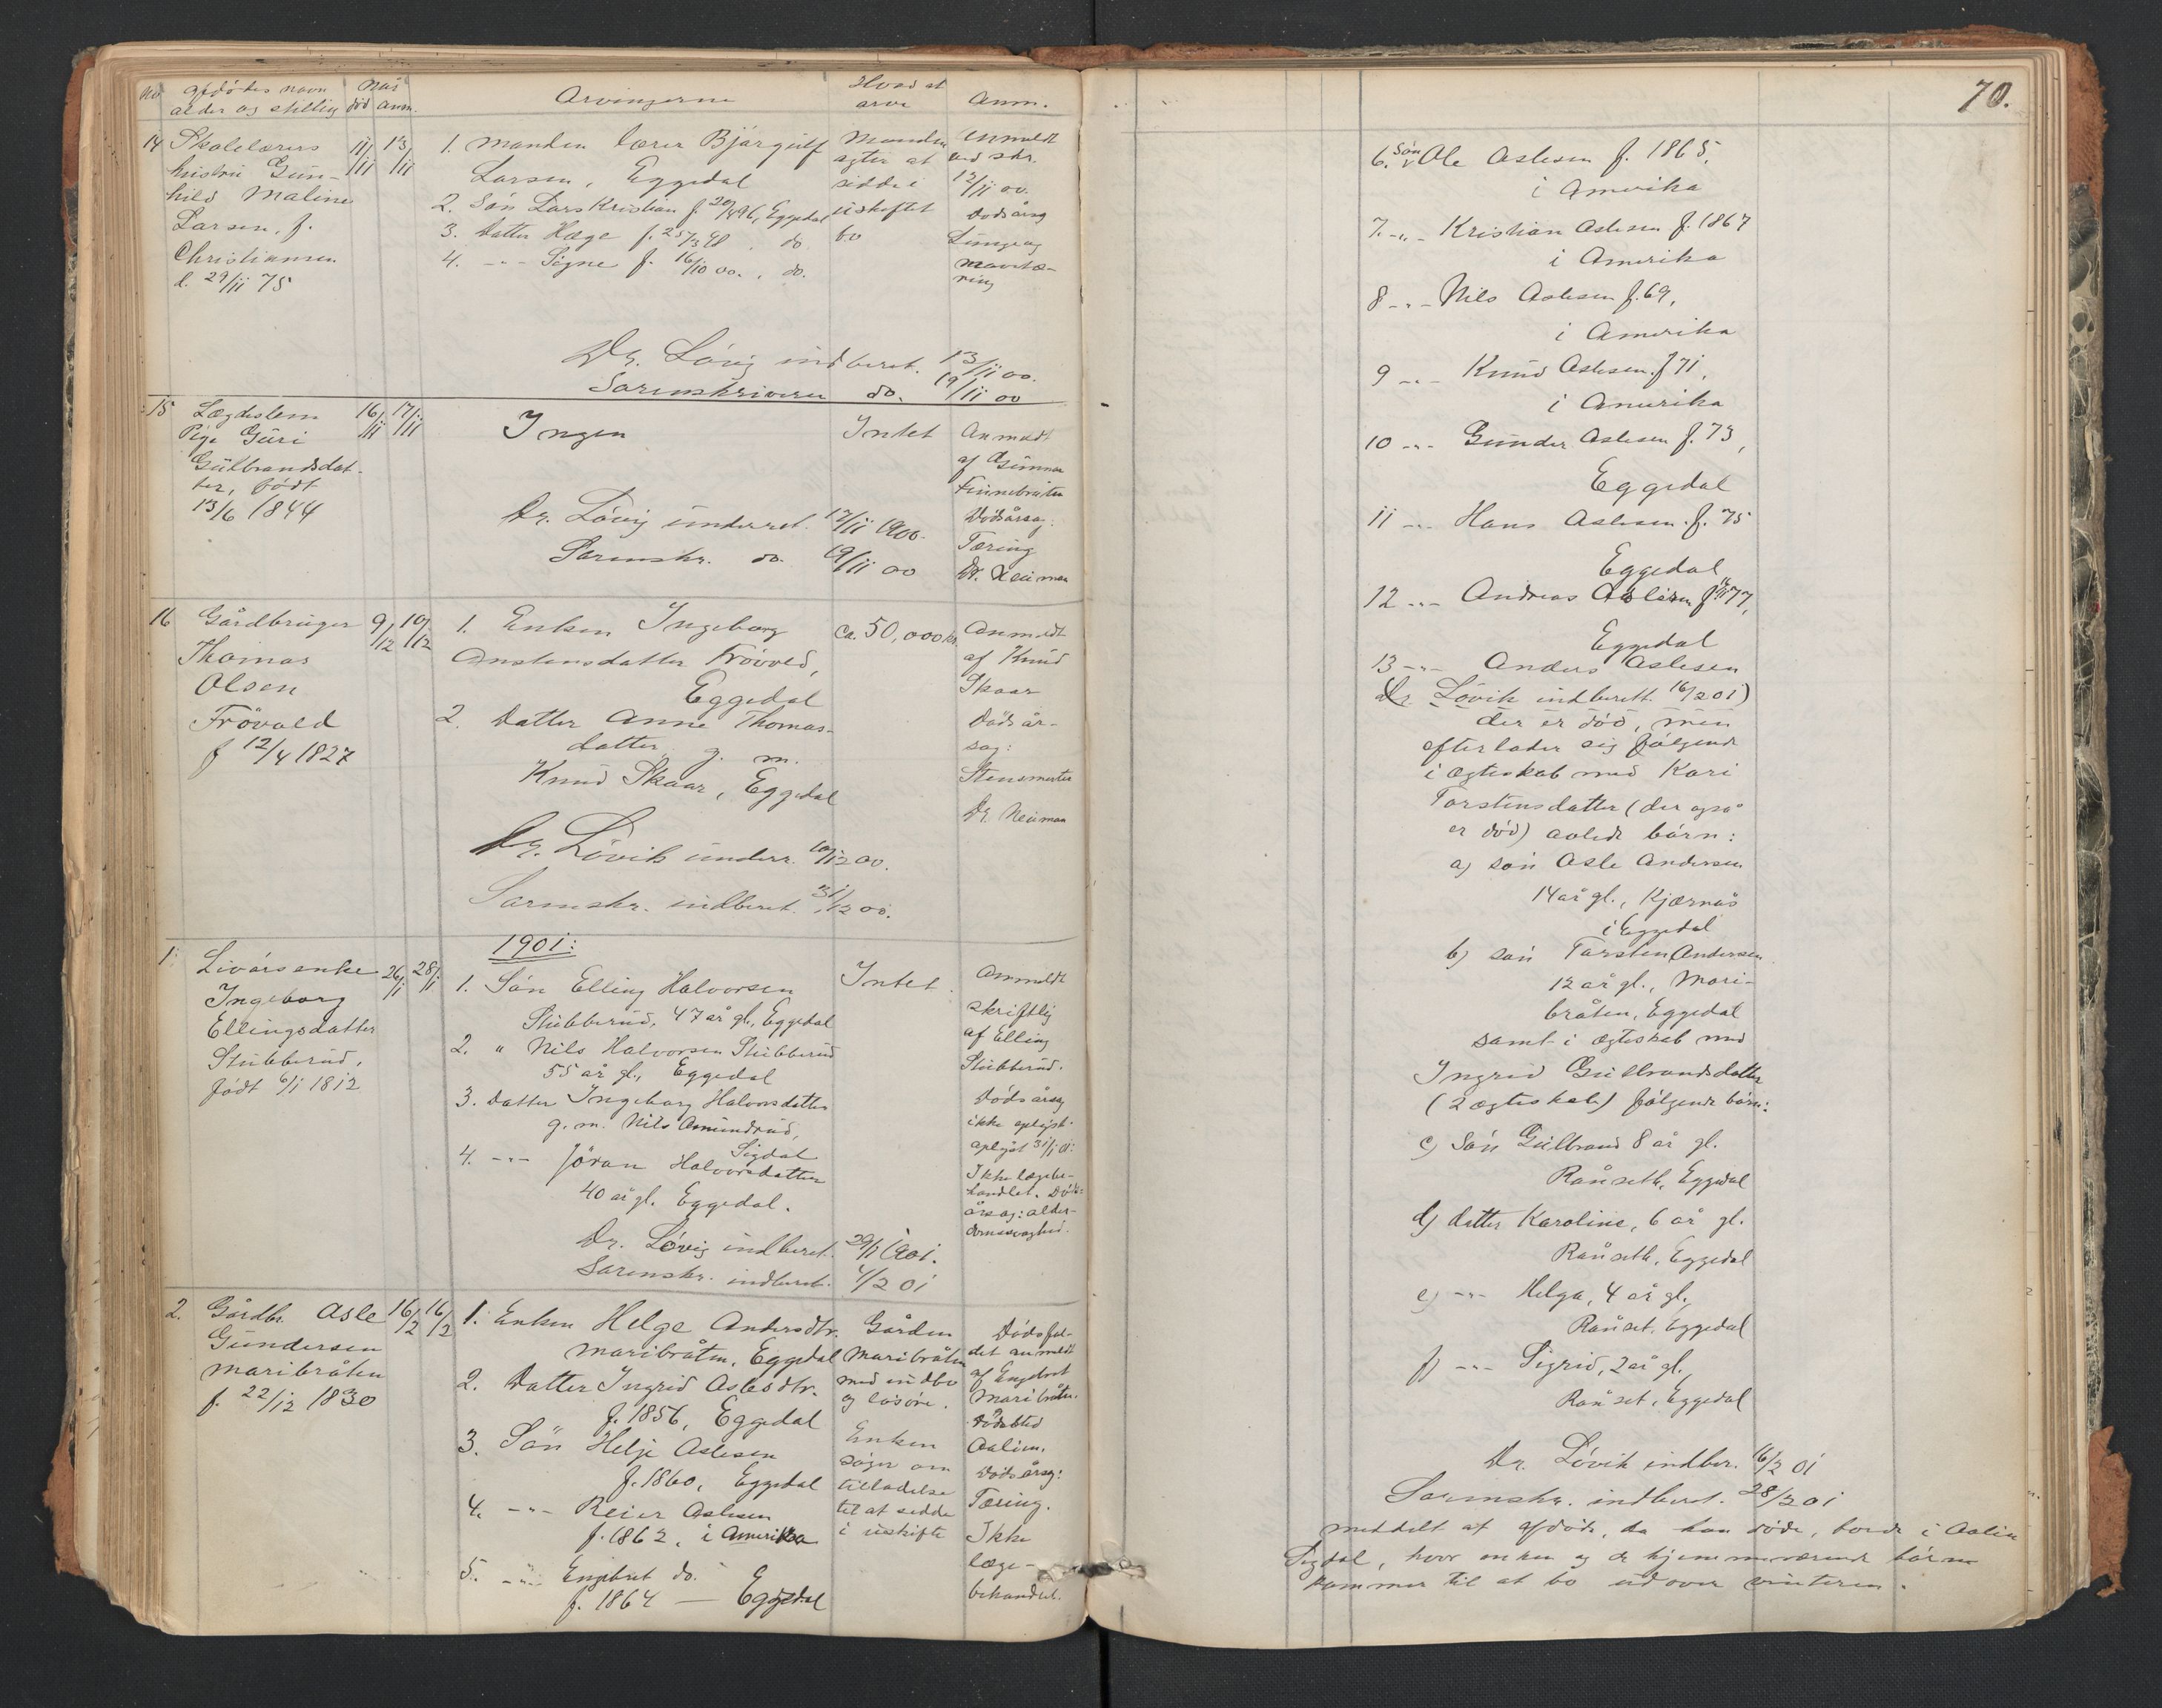 No Afdødes navn Når Arvingerne Hvad at Anm.
alder og stilling død anm. arve
14 Skolelærers 11/11 13/11
hustru Gun-
hild Maline
Larsen, f.
Christiansen
f. 29/11 75
1. Manden lærer Bjørgulf
Larsen, Eggedal
2. Søn Lars Kristian f. 20/1 96, Eggedal
3. Datter Hæge f. 25/3 98. do.
4. -"- Signe f. 16/10 00., do.
Manden
agter at
sidde i
uskiftet
bo
Anmeldt
ved skr.
12/11 00.
Dødsårsag
Lunge og
mavetæ-
ring
Dr. Lövig indberet. 13/11 00.
Sorenskriveren do. 19/11 00
15 Lægdslem 16/11 17/11
Pige Guri
Gulbrandsdat-
ter, født
13/6 1844
Ingen
Intet
Anmeldt
af Gunnar
Finnebråten
Dødsårsag:
Tæring
Dr. Neuman
Dr. Lövig underret. 17/11 1900.
Sorenskr. do. 19/11 00
16 Gårdbruger 9/12 10/12
Thomas
Olsen
Frövold
f 12/4 1827
1. Enken Ingeborg
Anstensdatter Frövold,
Eggedal
2. Datter Anne Thomas-
datter g. m.
Knud Skaar, Eggedal
ca. 50,000 kr.
Anmeldt
af Knud
Skaar
Dödsår-
sag:
Stensmerter
Dr. Neuman
Dr. Lövik underr. 10/12 00.
Sorenskr. indberet. 31/12 00.
1901:
1. Livörsenke 26/1 28/1
Ingeborg
Ellingsdatter
Stubberud,
født 6/1 1812
1. Sön Elling Halvorsen
Stubberud, 47 år gl., Eggedal
2. " Nils Halvorsen Stubberud
55 år gl., Eggedal
3. Datter Ingeborg Halvorsdatter
g. m. Nils Amundrud,
Sigdal
4. -"- Jöran Halvorsdatter
40 år gl. Eggedal.
Intet.
Anmeldt
skriftlig
af Elling
Stubberud.
Dødsårsag
ikke oplyst.
oplyst 31/1 01:
Ikke lægebe-
handlet. Døds-
årsag: alder-
domssvaghed.
Dr. Lövig indberet. 29/1 1901.
Sorenskr. indberet. 4/2 01
2. Gårdbr. Asle 16/2 16/2
Gundersen
Maribråten
f. 22/12 1830
1. Enken Helge Andersdtr.
Maribråten, Eggedal
2. Datter Ingrid Aslesdtr.
f. 1856, Eggedal
3. Sön Helje Aslesen
f. 1860, Eggedal
4. -"- Reier Aslesen
f. 1862, i Amerika
5. -"- Engebret do.
f. 1864 — Eggedal
Gården
Maribråten
med indbo
og løsøre.
Enken
søger om
tilladelse
til at sidde
i uskifte
Dødsfal-
det anmeldt
af Engebret
Maribråten.
Dødssted
Aalien.
Dødsårsag:
Tæring.
Ikke
læge-
behandlet.
70.
6. Søn Ole Aslesen f. 1865,
i Amerika
7. -"- Kristian Aslesen f. 1867
i Amerika
8 -"- Nils Aslesen f. 69,
i Amerika
9 -"- Knud Aslesen. f 71,
i Amerika
10 -"- Gunder Aslesen f. 73,
Eggedal
11 -"- Hans Aslesen. f. 75
Eggedal
12 -"- Andreas Aslesen f 77,
Eggedal
13 -"- Anders Aslesen
(Dr. Lövik indberett. 16/2 01)
der er död, men
efterlader sig følgende
i ægteskab med Kari
Torstensdatter (der også
er død) avlede børn:
a) søn Asle Andersen
14 år gl., Kjærnås
i Eggedal
b) søn Torsten Andersen
12 år gl., Mari-
bråten, Eggedal
samt i ægteskab med
Ingrid Gulbrandsdatter
(2 ægteskab) følgende børn:
c) Søn Gulbrand 8 år gl.
Rånseth, Eggedal
d) datter Karoline, 6 år gl.
Rånseth, Eggedal
e) -"- Helga, 4 år gl.,
Rånset, Eggedal
f) -"- Sigrid, 2 år gl.,
Rånset, Eggedal
Dr. Lövik indber. 16/2 01
Sorenskr. indberet. 28/2 01
meddelt at afdøde, da han døde, boede i Aalien
Sigdal, hvor enken og de hjemmeværende børn
kommer til at bo udover vinteren.